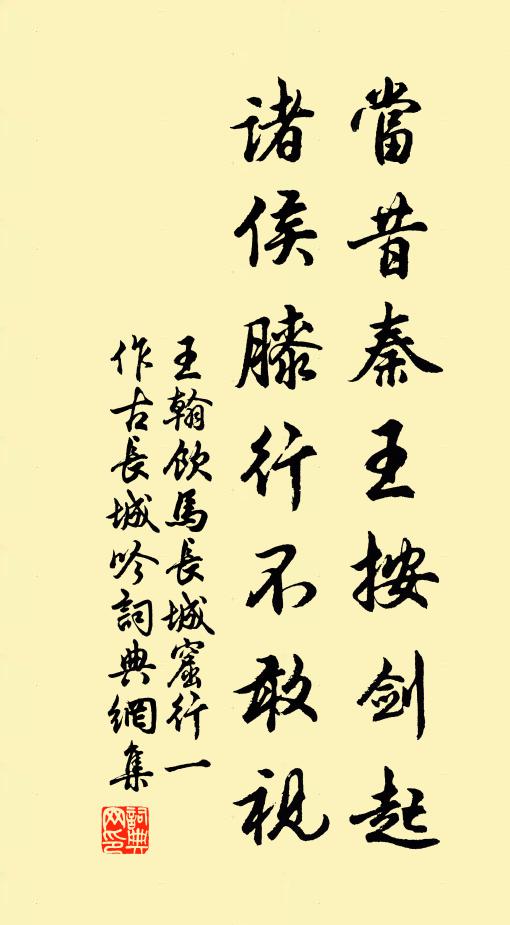 當昔秦王按劍起
諸侯膝行不敢視
王翰飲馬長城窟行一
作古長城吟詞典網集
詞典
网印